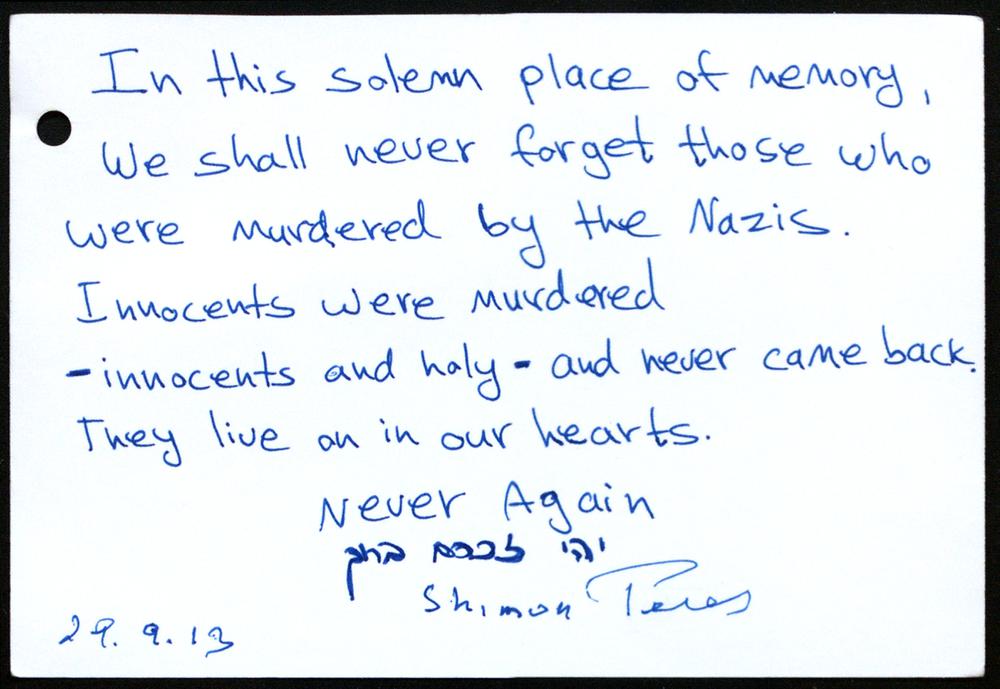 In this solemn place of memory,
We shall never forget those who
were murdered by the Nazis.
Innocents were murdered
- innocents and holy - and never came back.
They live on in our hearts.
Never Again
יהי זכרם ברוך
Shimon Peres
29. 9. 13